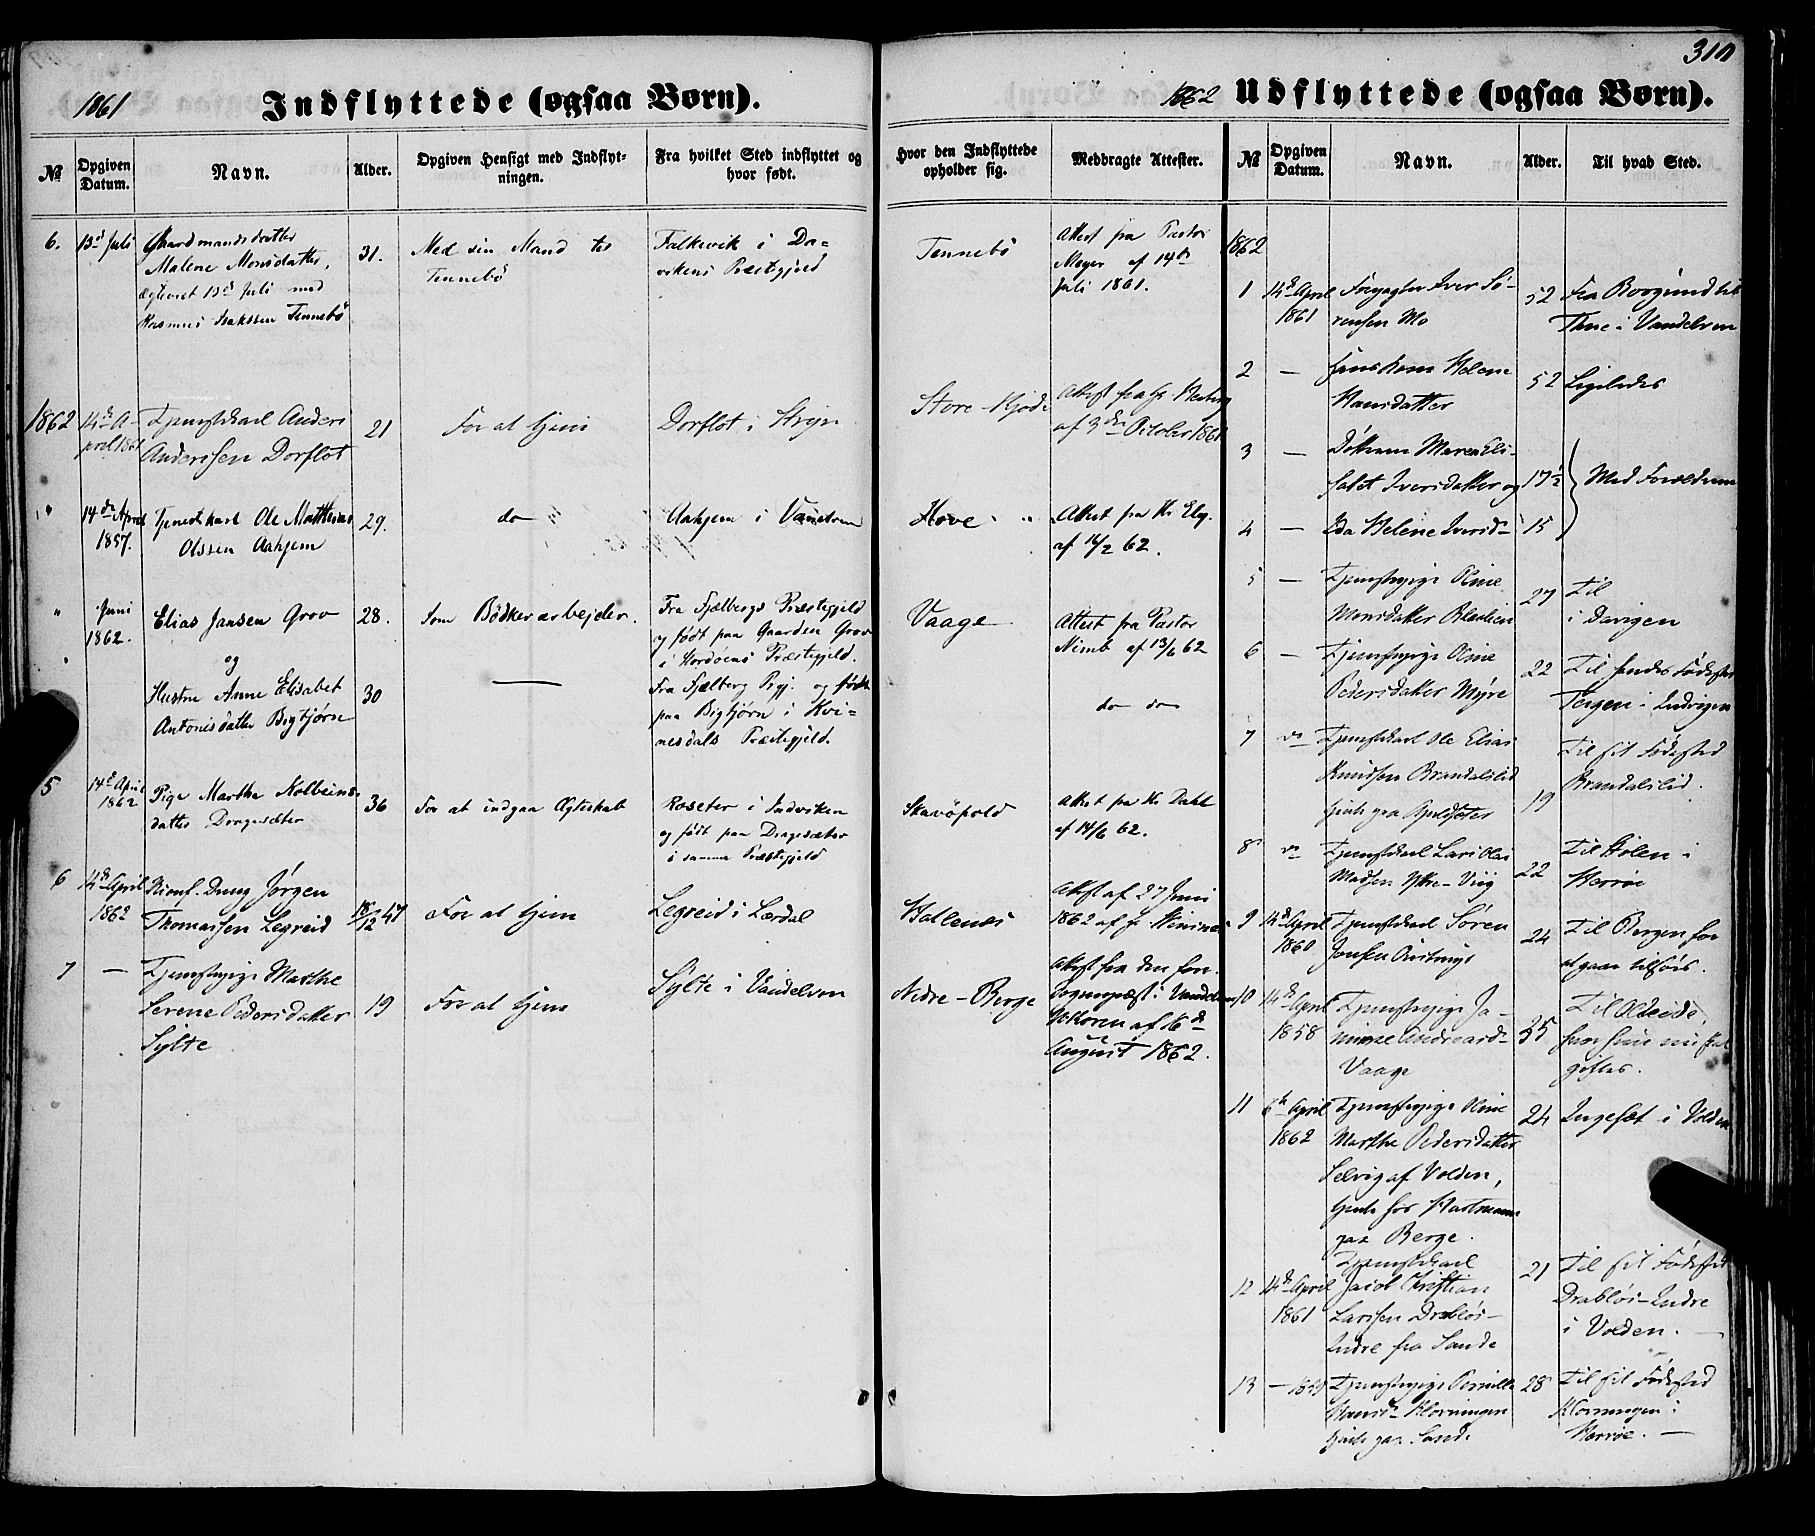 310
1861 Indflyttede (ogsaa Børn).
No Opgiven Datum. Navn. Alder. Opgiven Hensigt med Indflyt-
ningen. Fra hvilket Sted indflyttet og
hvor født. Hvor den Indflyttede
opholder sig. Medbragte Attester.
6. 13d Juli Gaardmandsdatter
Malene Monsdatter,
ægteviet 13d Juli med
Rasmus Isakssen Tennebö
31.
Med sin Mand til
Tennebö
Falkevik i Da-
vikens Præstegjeld
Tennebö
Attest fra Pastor
Meyer af 14de
Juli 1861.
1862 14de A-
pril 1861
Tjenestekarl Anders
Anderssen Dorflot
21
For at tjene
Dorflot i Stryn
Store-
af 3die October 1861
" 14de April
1857.
Tjenestkarl Ole Matthias
Olssen Aahjem
29.
do
Aahjem i Vanelven
Hove
Attest fra Hr. Elg.
af 16/2 62.
" Juni
1862.
Elias Jansen Grov
28.
Som Bödkerarbejder.
Fra Fjælbergs Præstegjeld
og født paa Gaarden Grov
i Præstegjeld.
Vaage
Attest fra Pastor
af 13/6 62
og
Hustru Anne Elisabet
Antonisdatter Bigtjørn
30
Fra Fjælberg Prgj. og født
paa Bigtjørn i Kvi-
nesdals Præstegjeld.
do do
5 14de April
1862
Pige Marthe
datter Dragesæter
36
For at indgaa Ægteskab
Roseter i Indviken
og født paa Dragesæter
i samme Præstegjeld
Attest fra Hr. Dahl
af 14/6 62.
6 14de April
1862
Konf. Dreng Jørgen
Thomassen Legreid
For at tjene
Legreid i Lærdal
Hallenæs
Attest af 27 Juni
1862 af
7 —
Tjenestepige Marthe
Serene Pedersdatter
Sylte
19
For at tjene
Sylte i Vandelven
Nedre-Berge
Attest fra den for.
Sognepræst i Vandelven
af 16de
August 1862.
1862 Udflyttede (ogsaa Børn).
No Opgiven Datum. Navn. Alder. Til hvad Sted.
1862
1 14de April
1861
Forpagter Iver Sö-
rensen Mo
52
Fra Borgund til
Thue i Vandelven
2 —
Hans Kone Helene
Hansdatter
52
Ligeledes
3 —
Døttrene Maren Eli-
sabet Iversdatter og
17½
Med Forældrene
4 —
Ida Helene Iversd-
15
5 —
Tjenestepige Oline
Monsdatter
27
Til
i Davigen
6 —
Tjenestepige Oline
Pedersdatter Myre
22
Til hendes Fødested
i Indvigen
7
Tjenestekarl Ole Elias
Knudsen Brandalslid
19
Til sit Fødested
Brandalslid.
8
Tjenestekarl Lars Olai
Madsen Ytre-Viig
22
Til Holen i
Herröe
9 14de April
1860
Tjenestekarl Søren
24
Til Bergen for
at gaae tilsöes.
10 14de April
1858
Tjenestepige Ja-
Vaage
35
Til
hvor hun nu skal
giftes.
11 6te April
1862
Tjenestepige Oline
Marthe Pedersdatter
Selvig af Volden,
tjente hos Hartmann
paa Berge.
24
i Volden
12 14de April
1861
Tjenestekarl
Jacob Christian
Larssen Drabløs-
Indre fra Sande
21
Til sit Fødested
Drabløs-Indre
i Volden. —
13 — 1859
Tjenestepige Pernille
Hansd- Klovningen
tjente paa Sande
28
Til sit Fødested
Klovningen i
Herröe. —